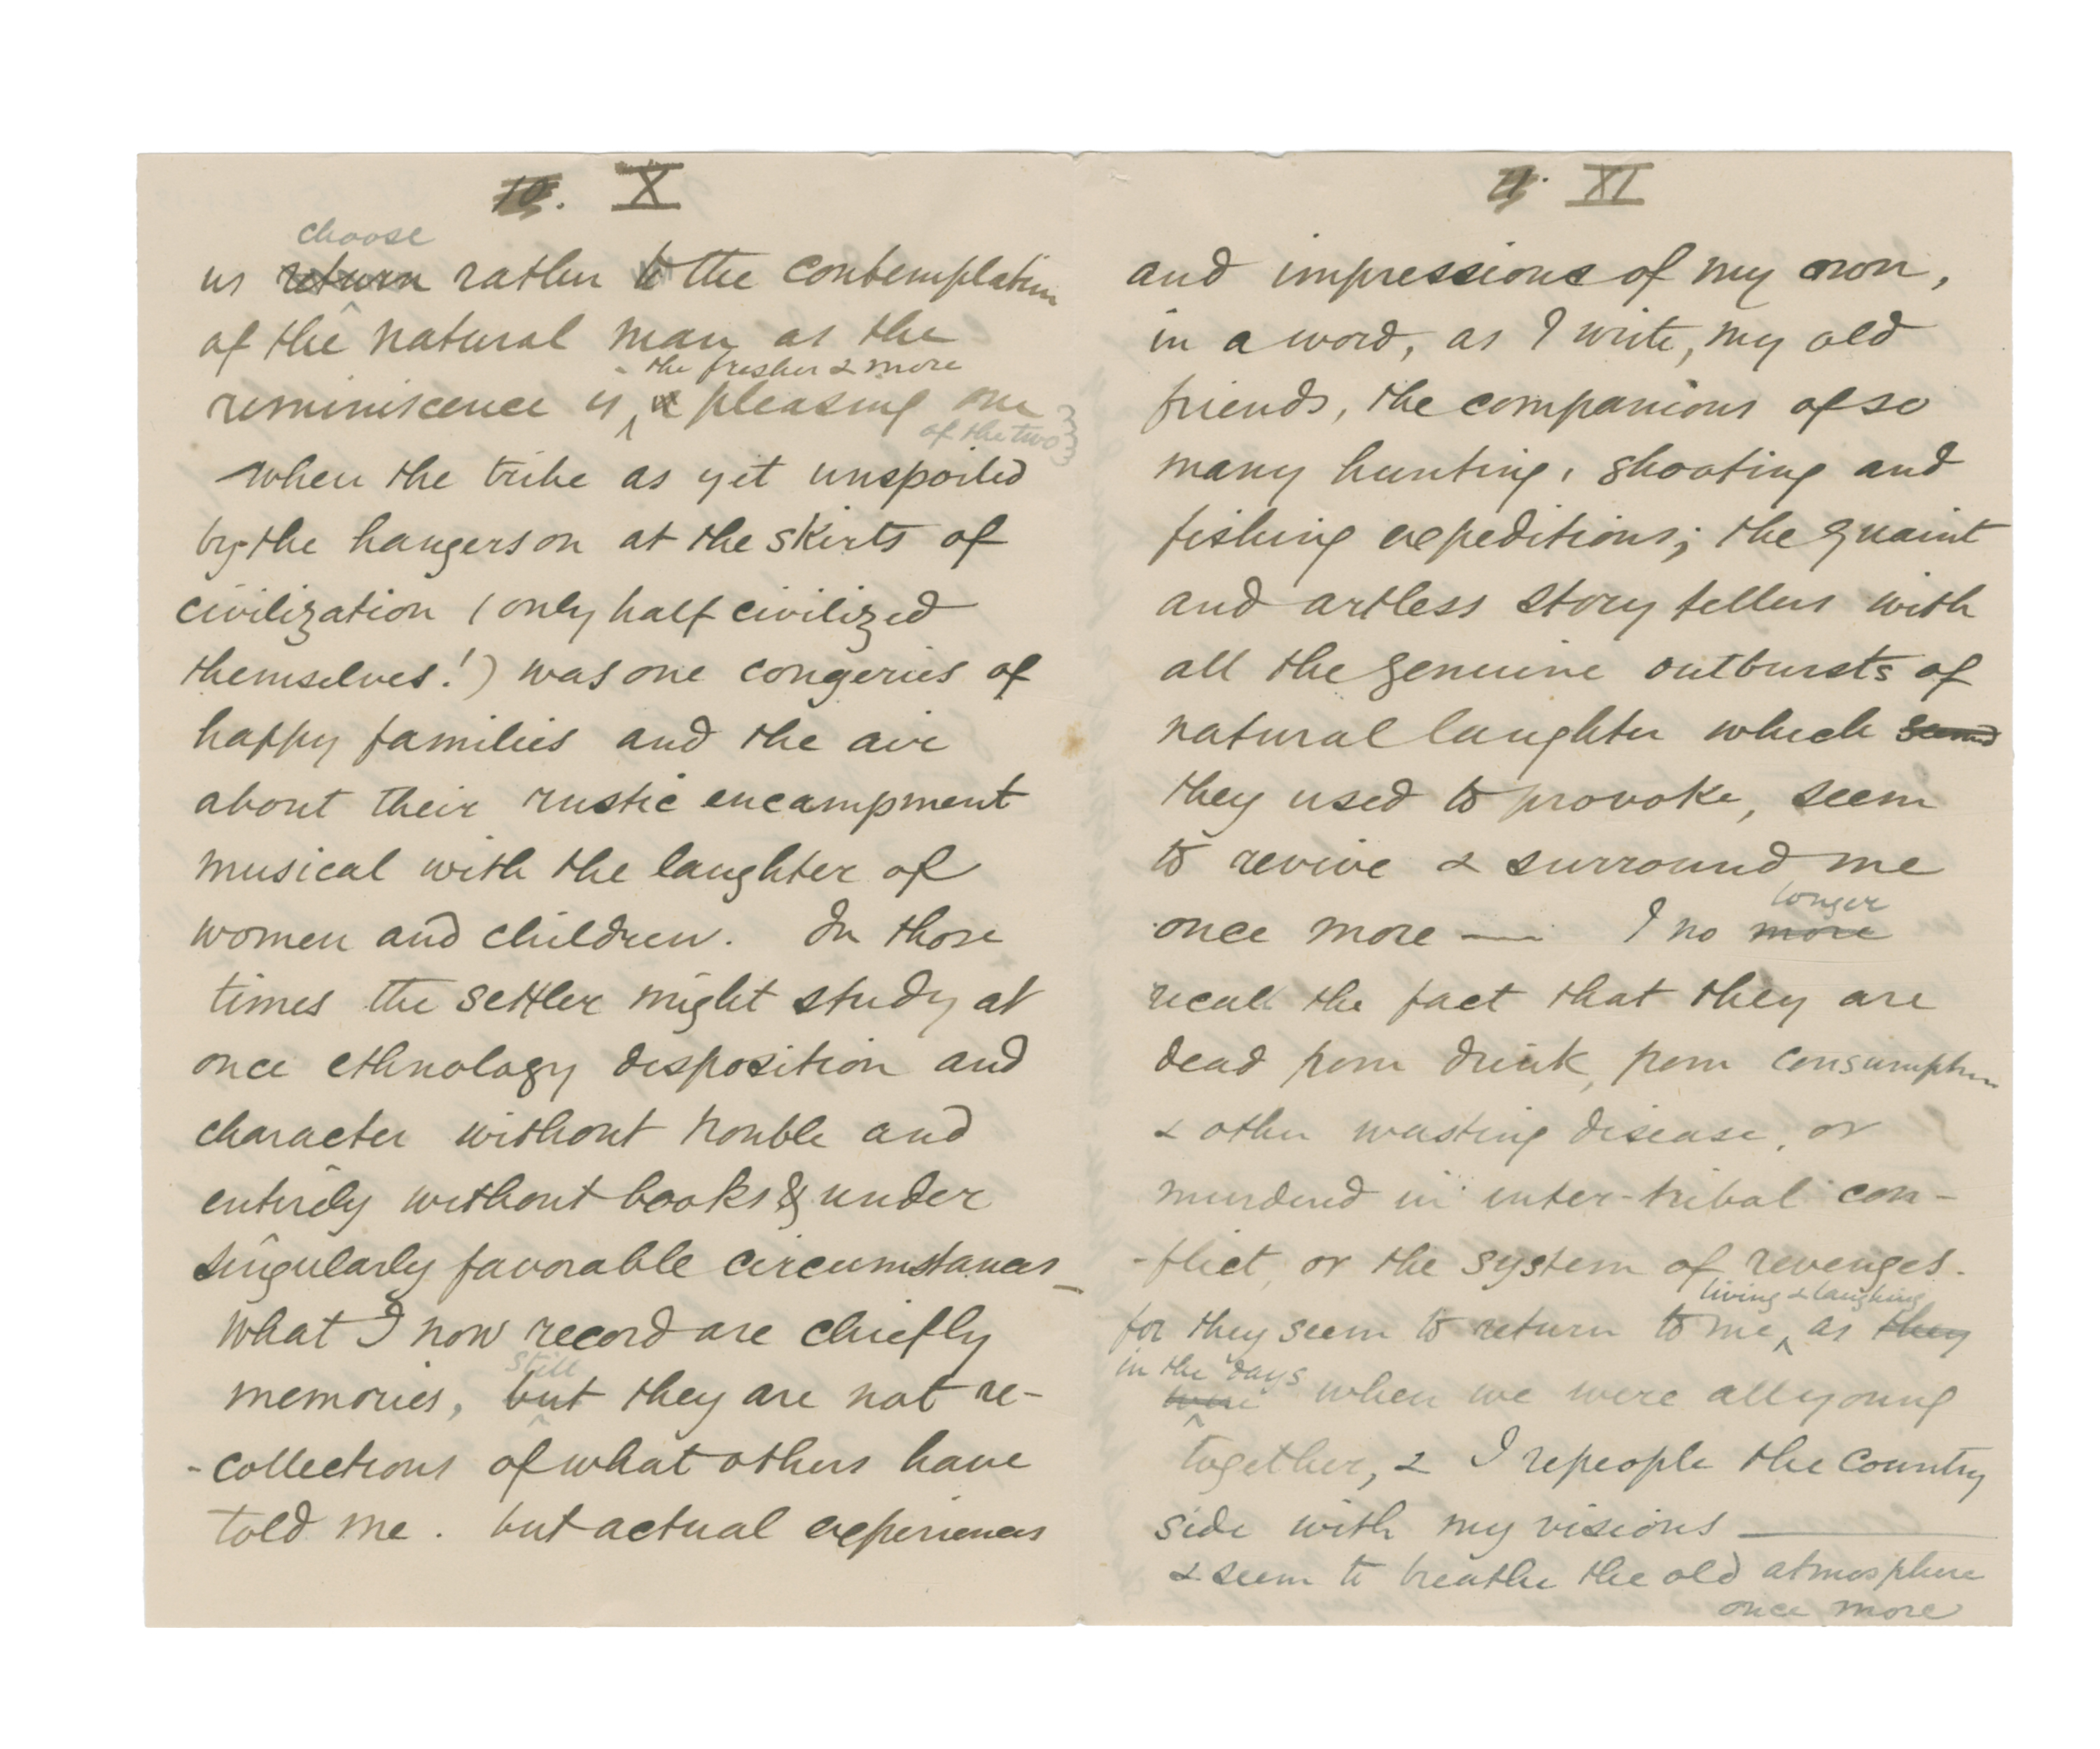 10. X
choose
us return rather to the contemplation
of the natural man as the
the fresher & more
reminiscence is a pleasing one
of the two
when the tribe as yet unspoiled
by the hangers on at the skirts of
civilization (only half civilized
themselves!) was one congeries of
happy families and the air
about their rustic encampment
musical with the laughter of
women and children. In those
times the settler might study at
once ethnology disposition and
character without trouble and
entirely without books & under
singularly favorable circumstances_
What I now record are chiefly
still
memories, but they are not re-
-collections of what others have
told me. but actual experiences
11. XI
and impressions of my own,
in a word, as I write, my old
friends, the companions of so
many hunting, shooting and
fishing expeditions; the quaint
and artless story tellers with
all the genuine outbursts of
natural laughter which seemed
they used to provoke, seem
to revive & surround me
longer
once more — I no more
recall the fact that they are
dead from drink, from consumption
& other wasting disease, or
murdered in inter-tribal con-
-flict, or the system of revenges.
living & laughing
for they seem to return to me, as they
in the days
were when we were all young
together, & I repeople the country
side with my visions —
& seem to breathe the old atmosphere
once more